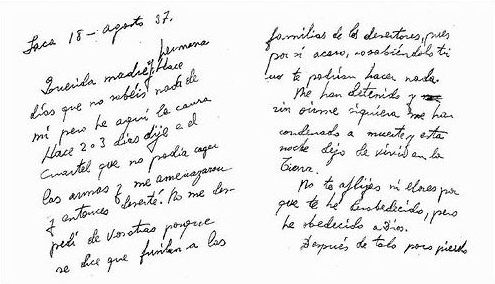 Jaca 18 - agosto 37.
Querida madre y hermana
Hace
días que no sabéis nada de
mí pero he aquí la causa
Hace 2 o 3 días dije a el
cuartel que no podía coger
las armas y me amenazaron
y entonces deserté. No me des-
pedí de vosotras porque
se dice que fusilan a las
familias de los desertores, pues
por si acaso, no sabiéndolo tú
no te podrían hacer nada.
Me han detenido y
sin oirme siquiera me han
condenado a muerte y esta
noche dejo de vivir en la
Tierra.
No te aflijas ni llores por
que te he desobedecido, pero
he obedecido a Dios.
Después de todo poco pierdo